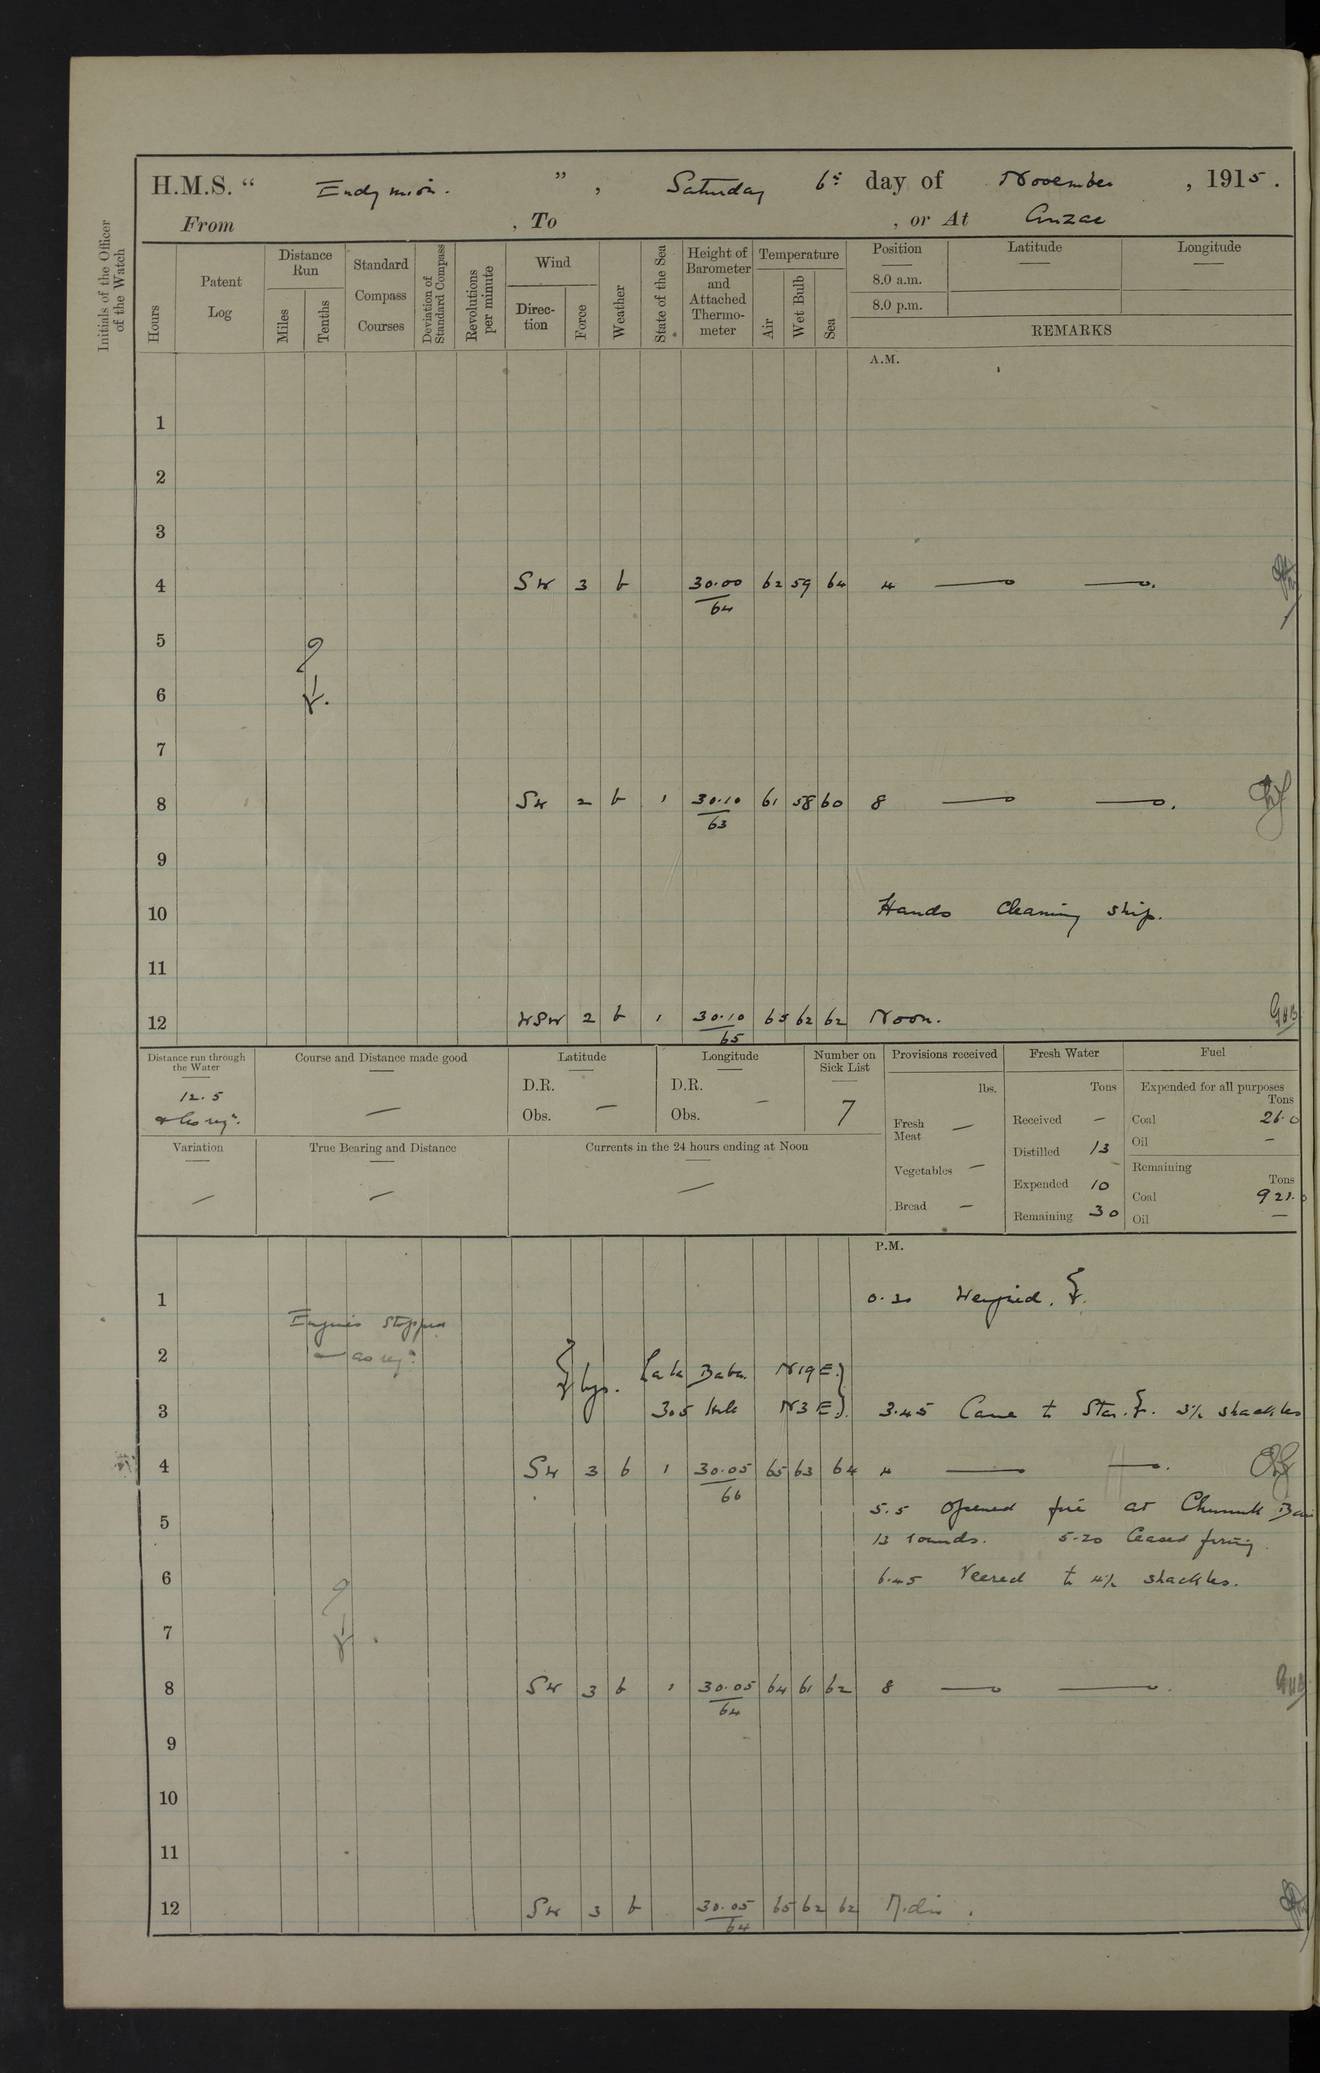 H.M.S. “ Endymion. ” , Saturday 6th day of November , 1915 .
From , To , or At Anzac
Initials of the Officer of the Watch
Hours
Patent Log
Distance Run
Miles
Tenths
Standard Compass Courses
Deviation of Standard Compass
Revolutions per minute
Wind
Direction
Force
Weather
State of the Sea
Height of Barometer and Attached Thermometer
Temperature
Air
Wet Bulb
Sea
Position Latitude Longitude
8.0 a.m.
8.0 p.m.
REMARKS
A.M.
1
2
3
4 SW 3 b 30.00/64 62 59 64 4
5
6
7
8 SW 2 b 1 30.10/63 61 58 60 8
9
10 Hands Cleaning ship.
11
12 WSW 2 b 1 30.10/65 65 62 62 Noon. GHB
Distance run through the Water
12.5
& as reqd.
Course and Distance made good
—
Latitude
D.R.
Obs. —
Longitude
D.R. —
Obs.
Number on Sick List
7
Provisions received
lbs.
Fresh Meat —
Vegetables —
Bread —
Fresh Water
Tons
Received —
Distilled 13
Expended 10
Remaining 30
Fuel
Expended for all purposes
Tons
Coal 26.0
Oil —
Remaining
Tons
Coal 921.0
Oil —
Variation
—
True Bearing and Distance
—
Currents in the 24 hours ending at Noon
—
P.M.
1 0.30 Weighed.
Engines stopped
2 — as reqd.
brgs. Lala Baba. N19E.
3 305 Hill N3E. 3.45 Came to Star. 3½ shackles
4 SW 3 b 1 30.05/66 65 63 64 4
5.5 Opened fire at Chunuk Bair
5 13 rounds. 5.20 Ceased firing.
6 6.45 Veered to 4½ shackles.
7
8 SW 3 b 1 30.05/64 64 61 62 8 GHB
9
10
11
12 SW 3 b 30.05/64 65 62 62 Midn.